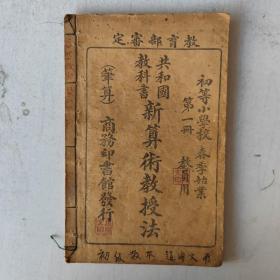 教育部審定
初等小學校 春季始業
第一冊 教員用
共和國
教科書
新算術教授法
(筆算)
商務印書館發行
初級